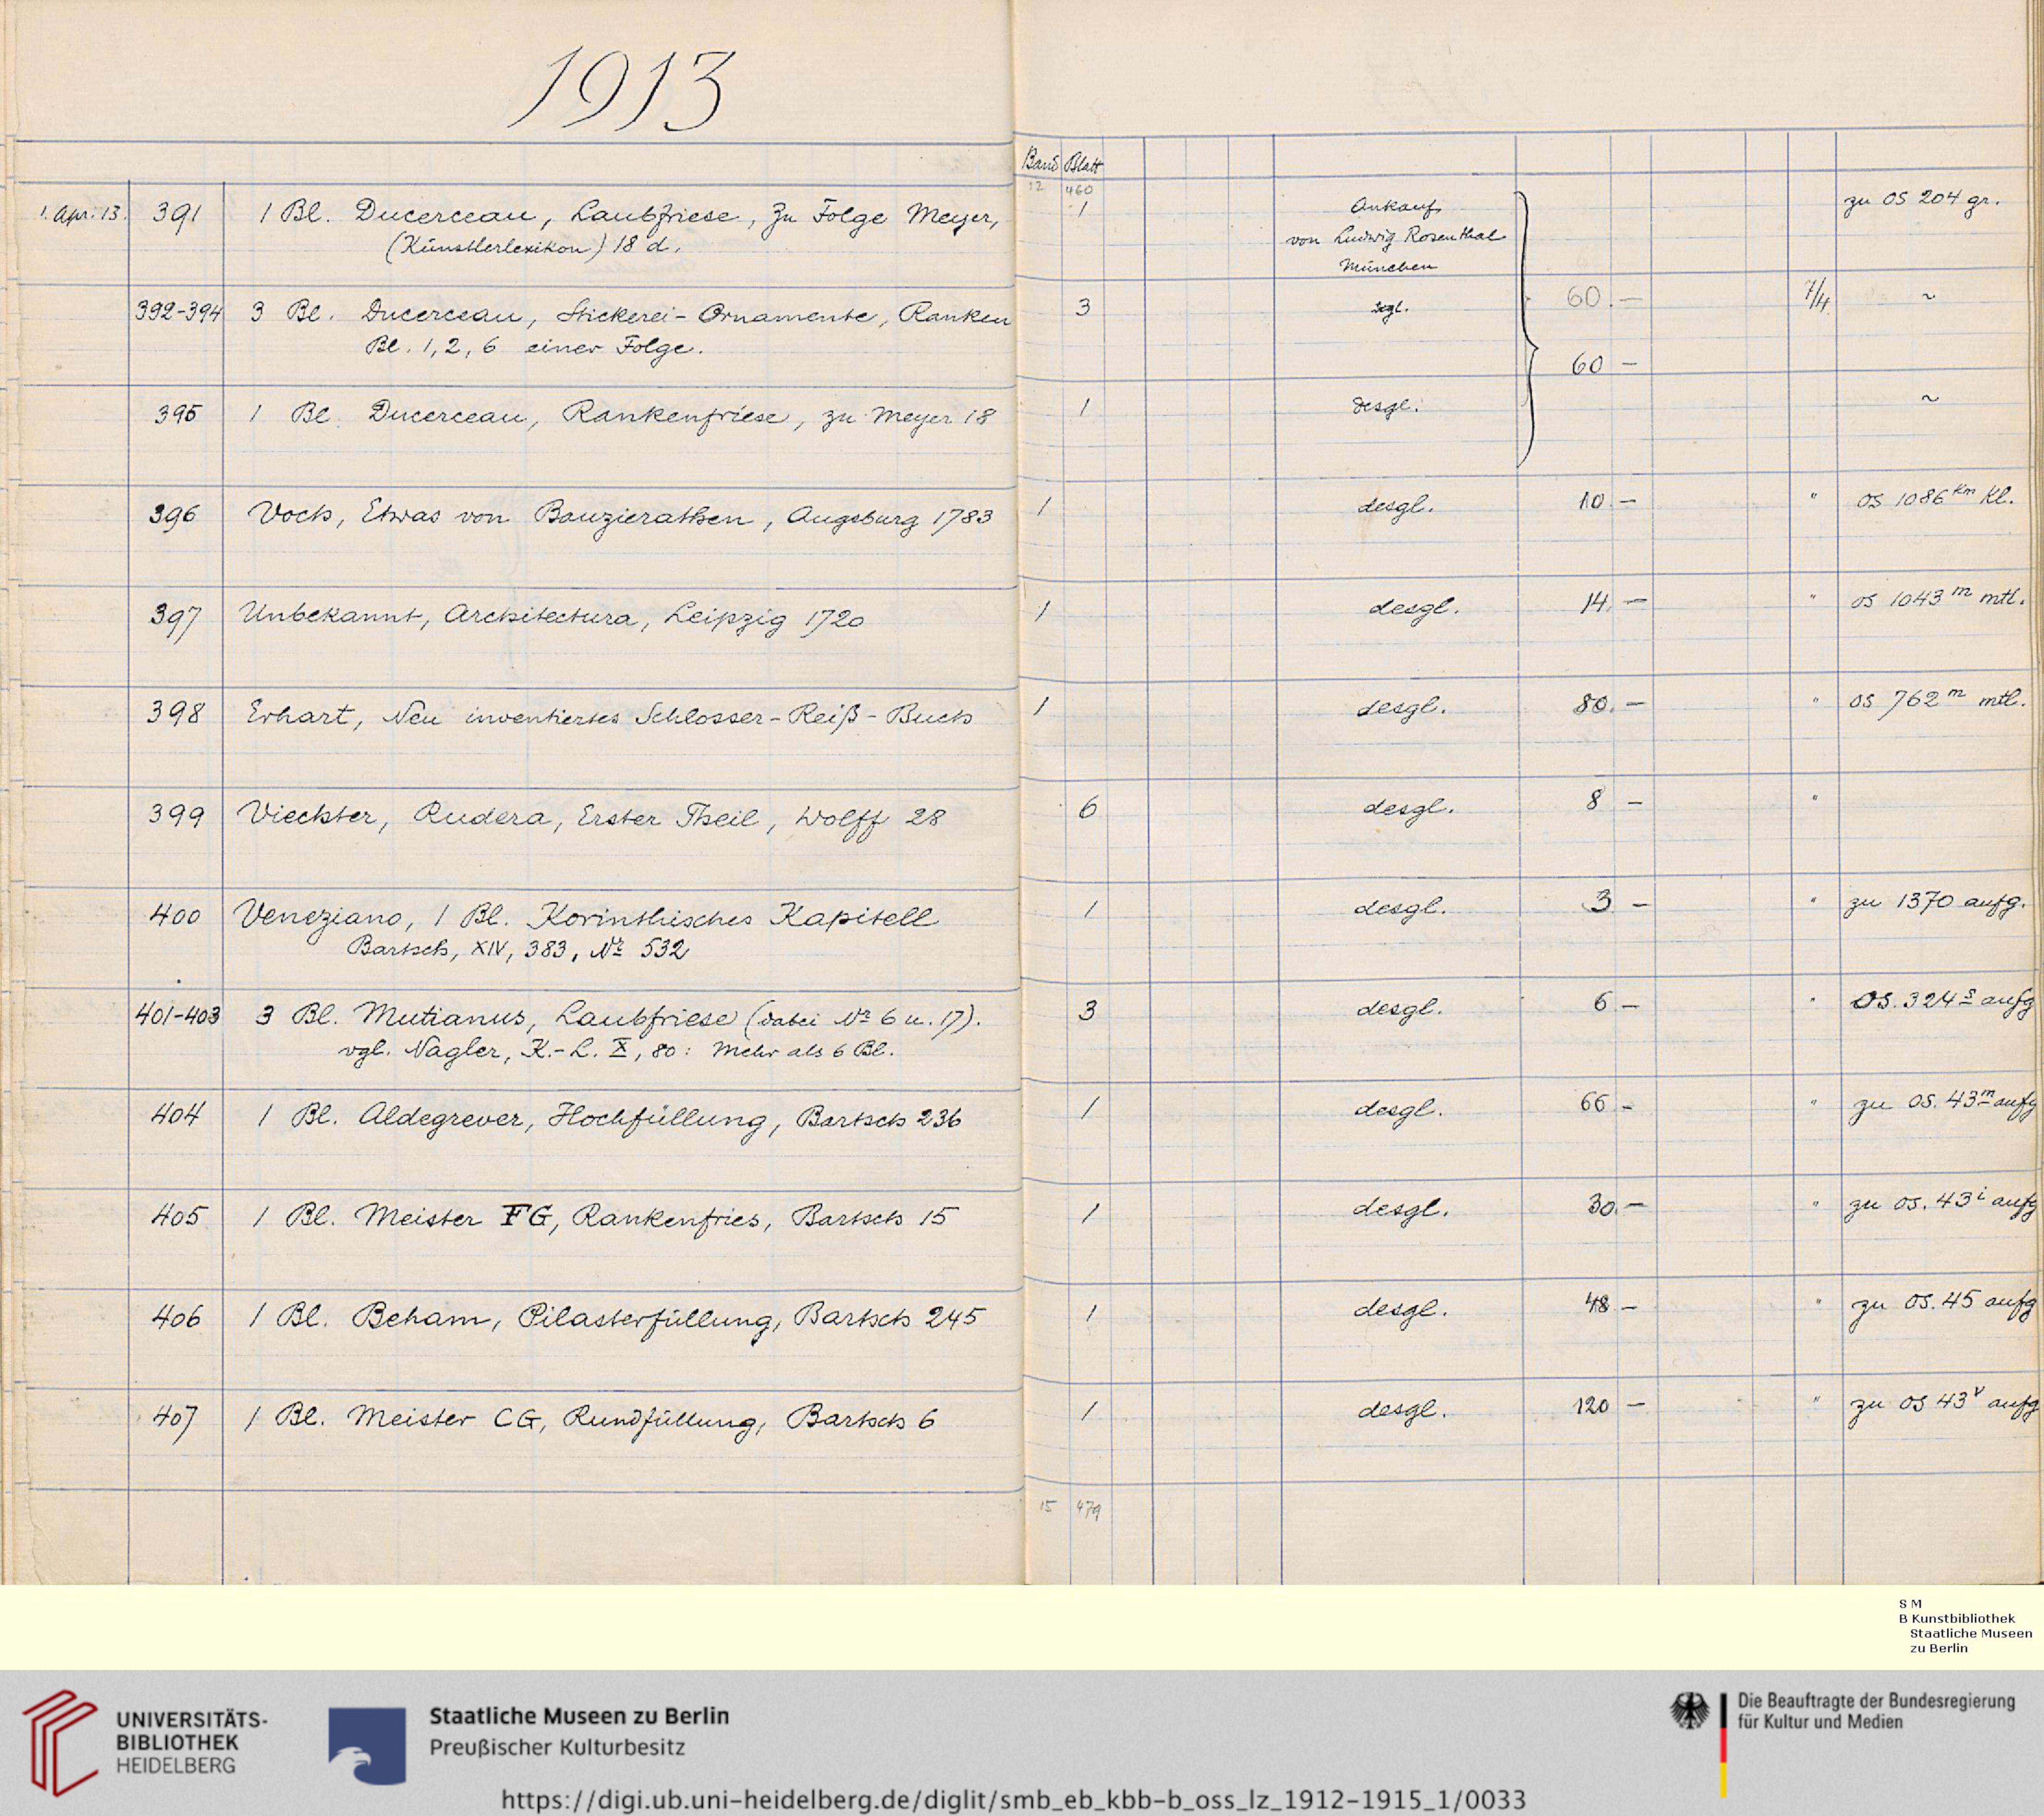 1913
Band Blatt
12 460
1. Apr. 13. 391 1 Bl. Ducerceau, Laubfriese, Zu Folge Meyer, 1 Ankauf zu OS 204 gr.
(Künstlerlexikon) 18 d. von Ludwig Rosenthal
München
392-394 3 Bl. Ducerceau, Stickerei-Ornamente, Ranken 3 dsgl. 60.— 7/4 ~
Bl. 1, 2, 6 einer Folge. 60 —
395 1 Bl. Ducerceau, Rankenfriese, zu Meyer 18 1 desgl. ~
396 Voch, Etwas von Bauzierathen, Augsburg 1783 1 desgl. 10.— " OS 1086 km Kl.
397 Unbekannt, Architectura, Leipzig 1720 1 desgl. 14.— " OS 1043 m mtl.
398 Erhart, Neu inventiertes Schlosser-Reiß-Buch 1 desgl. 80.— " OS 762 m mtl.
399 Viechter, Rudera, Erster Theil, Wolff 28 6 desgl. 8 — "
400 Veneziano, 1 Bl. Korinthisches Kapitell 1 desgl. 3 — " zu 1370 aufg.
Bartsch, XIV, 383, Nr 532
401-403 3 Bl. Mutianus, Laubfriese (dabei Nr 6 u. 17). 3 desgl. 6 — " OS. 324 s aufg
vgl. Nagler, K.-L. X, 80: Mehr als 6 Bl.
404 1 Bl. Aldegrever, Hochfüllung, Bartsch 236 1 desgl. 66 — " zu OS. 43 m aufg
405 1 Bl. Meister FG, Rankenfries, Bartsch 15 1 desgl. 30.— " zu OS. 43 i aufg
406 1 Bl. Beham, Pilasterfüllung, Bartsch 245 1 desgl. 48 — " zu OS. 45 aufg
407 1 Bl. Meister CG, Rundfüllung, Bartsch 6 1 desgl. 120 — " zu OS 43 v aufg
15 479
S M
B Kunstbibliothek
Staatliche Museen
zu Berlin
UNIVERSITÄTS-
BIBLIOTHEK
HEIDELBERG
Staatliche Museen zu Berlin
Preußischer Kulturbesitz
Die Beauftragte der Bundesregierung
für Kultur und Medien
https://digi.ub.uni-heidelberg.de/diglit/smb_eb_kbb-b_oss_lz_1912-1915_1/0033